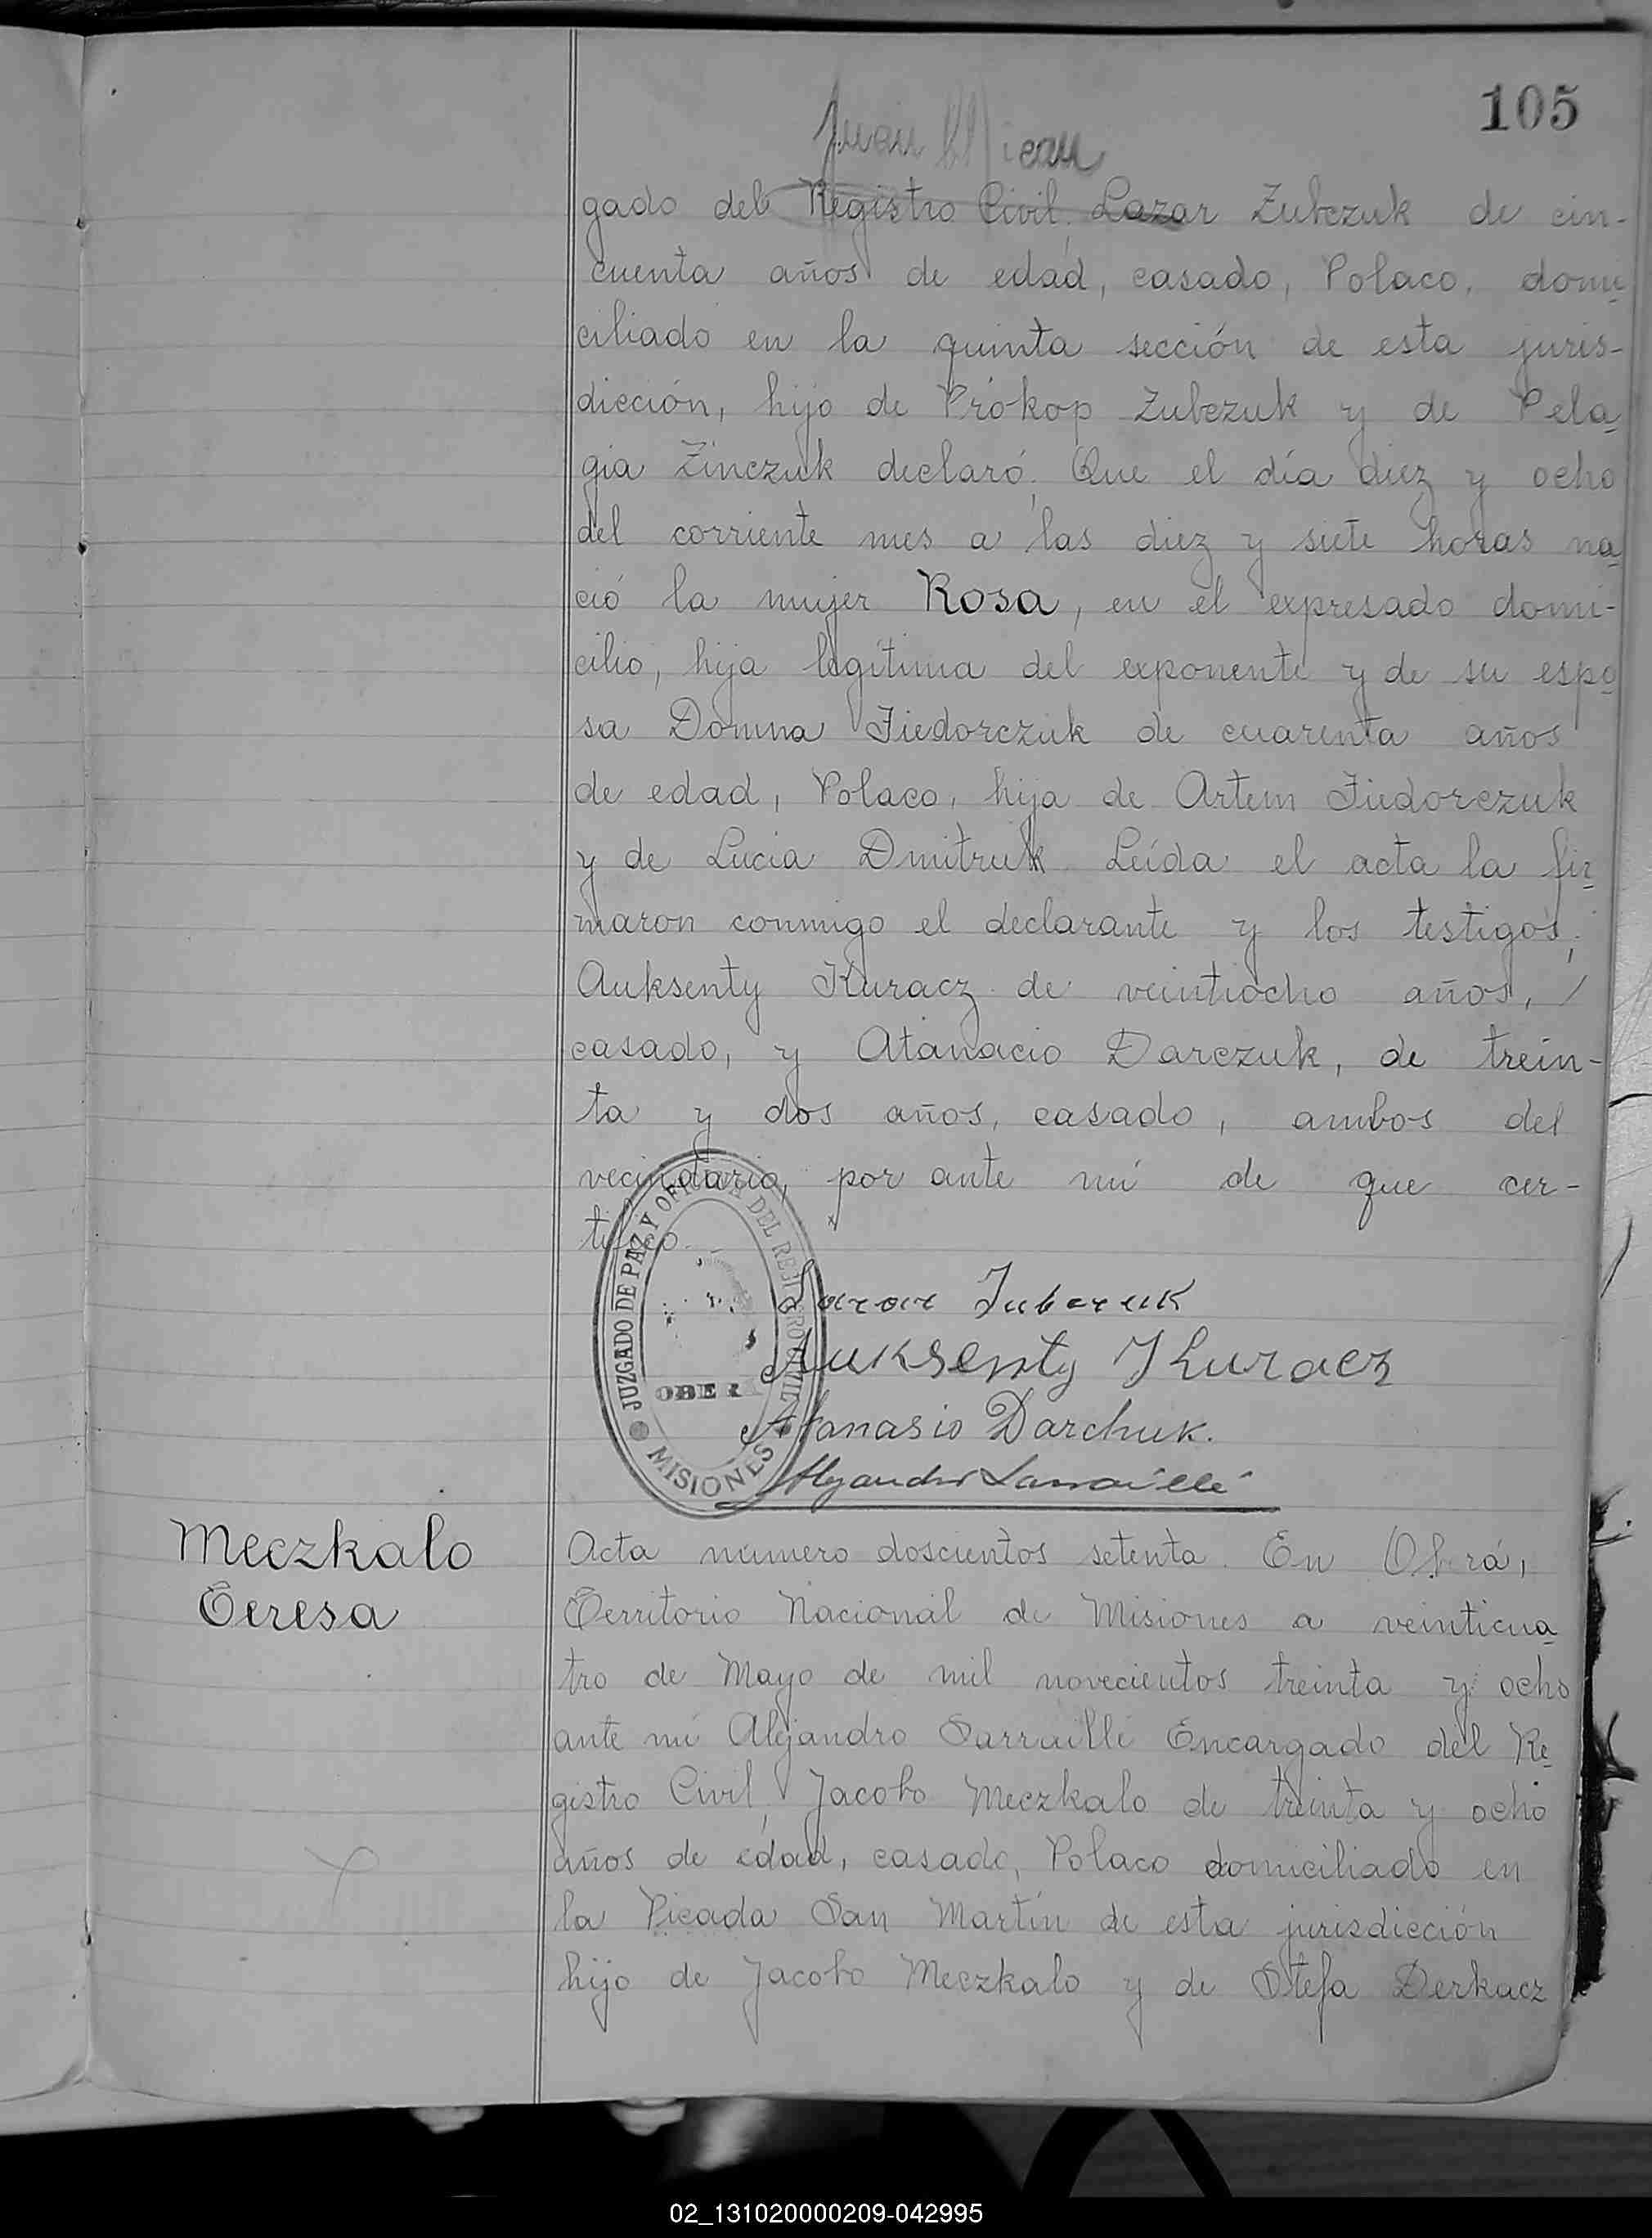 105
Juan
gado del Registro Civil, Lazar Zubczuk de cin-
cuenta años de edad, casado, Polaco, domi
ciliado en la quinta sección de esta juris-
dicción, hijo de Prókop Zubczuk y de Pela
gia Zinczuk declaró; Que el día diez y ocho
del corriente mes a las diez y siete horas na
ció la mujer Rosa, en el expresado domi-
cilio, hija legítima del exponente y de su espo
sa Domna Fiedorczuk de cuarenta años
de edad, Polaco, hija de Artem Fiedorczuk
y de Lucia Dmitruk. Leída el acta la fir
maron conmigo el declarante y los testigos;
Auksenty Kuracz de veintiocho años,
casado, y Atanacio Darczuk, de trein-
ta y dos años, casado, ambos del
vecindario, por ante mí de que cer-
tifico.
JUZGADO DE PAZ Y OFICINA DEL REGISTRO CIVIL
OBERA
MISIONES
Lazar Zubczuk
Auksenty Kuracz
Atanasio Darchuk.
Alejandro Sarraillé
Meczkalo
Teresa
Acta número doscientos setenta. En Oberá,
Territorio Nacional de Misiones a veinticua
tro de Mayo de mil novecientos treinta y ocho
ante mí Alejandro Sarraillé Encargado del Re
gistro Civil, Jacobo Meczkalo de treinta y ocho
años de edad, casado, Polaco domiciliado en
la Picada San Martín de esta jurisdicción
hijo de Jacobo Meczkalo y de Stefa Derkacz
02_131020000209-042995